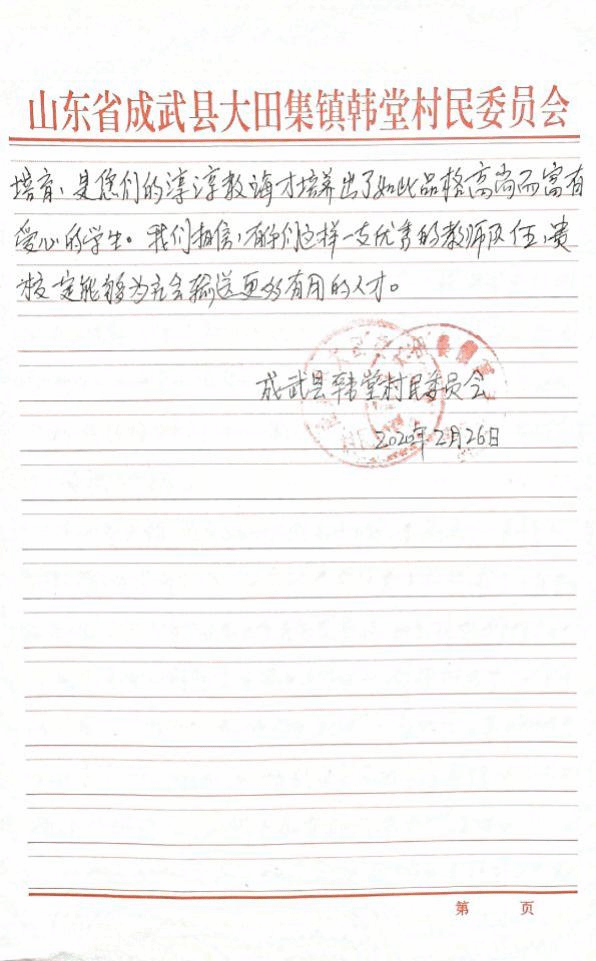 山东省成武县大田集镇韩堂村民委员会
培育,是您们的淳淳教诲才培养出了如此品格高尚而富有
爱心的学生。我们相信,有你们这样一支优秀的教师队伍,贵
校定能够为社会输送更多有用的人才。
成武县韩堂村民委员会
2020年2月26日
第 页